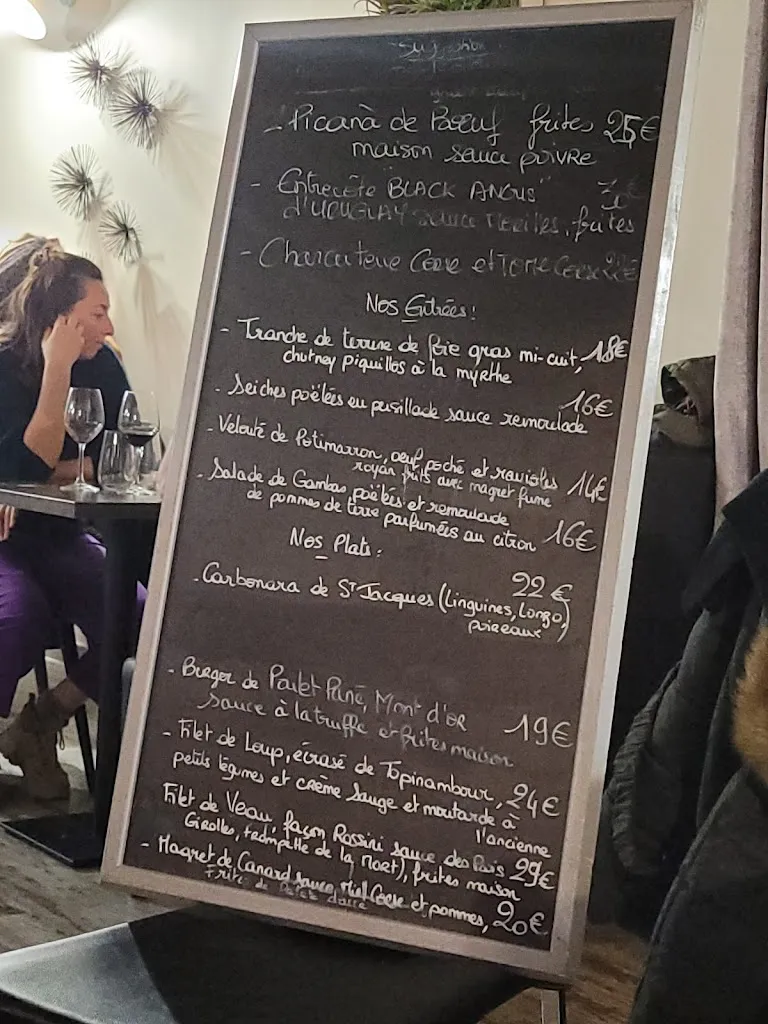 Suggestion
- Picanà de Bœuf frites 25€
maison sauce poivre
- Entrecôte "BLACK ANGUS" 30€
d'URUGUAY sauce Morilles, frites
- Charcuterie Corse et Tome Corse
Nos Entrées:
- Tranche de terrine de foie gras mi-cuit, 18€
chutney piquillos à la myrthe
- Seiches poëlées en persillade sauce remoulade 16€
- Velouté de Potimarron, oeuf poché et ravioles 14€
royan frits avec magret fumé
- Salade de Gambas poëlées et remoulade
de pommes de terre parfumées au citron 16€
Nos Plats:
22€
- Carbonara de St Jacques (Linguines, Lonzo,
poireaux)
- Burger de Poulet Pané, Mont d'OR
sauce à la truffe et frites maison 19€
- Filet de Loup, écrasé de Topinambour, 24€
petits légumes et crème Sauge et moutarde à
l'ancienne
Filet de Veau, façon Rossini sauce des Bois 29€
Girolles, trompette de la Moet), frites maison
- Magret de Canard sauce Miel Corse et pommes, 20€
Frites de Patate douce